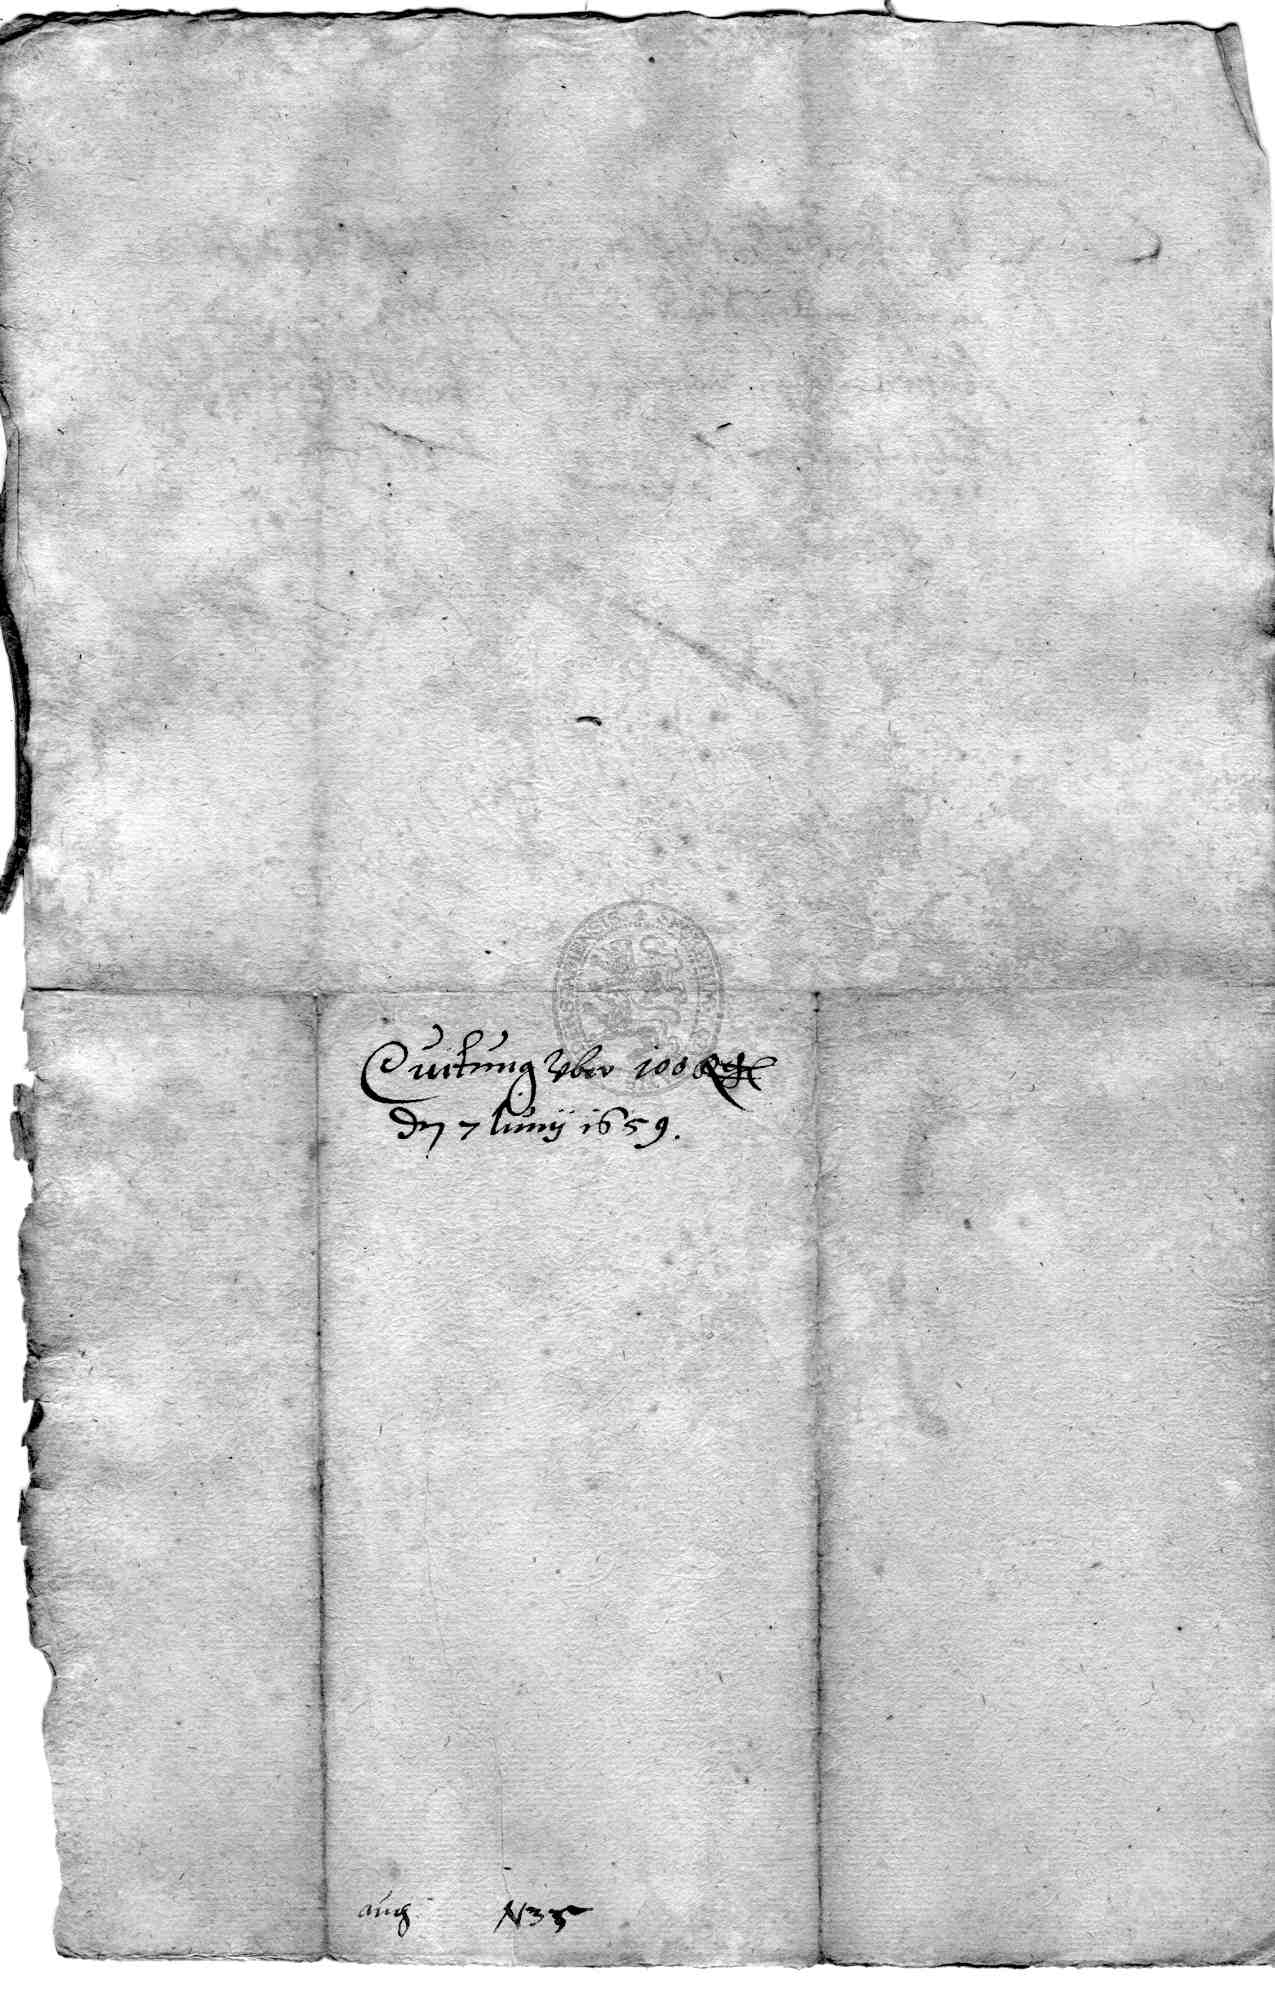 Quitung Vber 100 Rth
den 7 Iunij 1659.
aug N 35